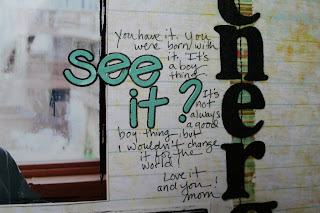 see
it?
You have it. You
were born with
it. It's
a boy
thing.
It's
not
always
a good
boy thing, but
I wouldn't change
it for the
world!
Love it
and you!
mom
ener